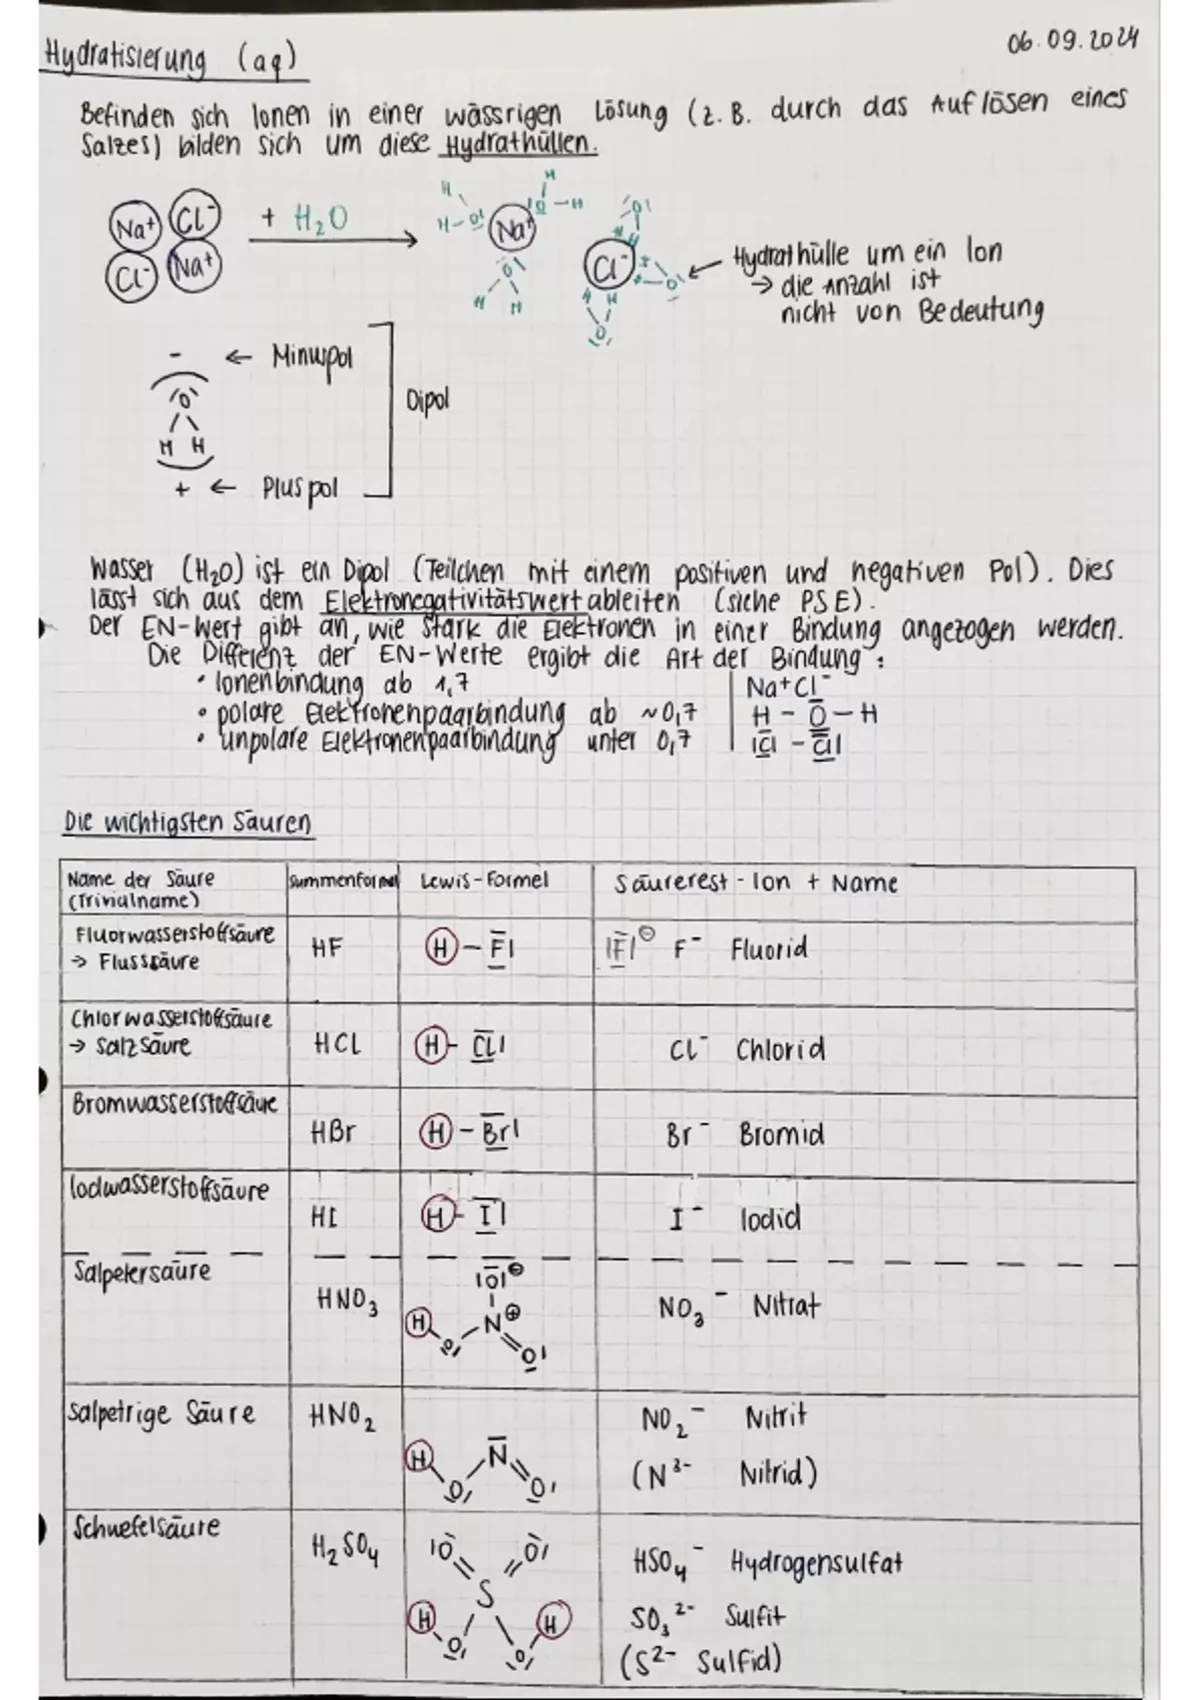 Hydratisierung (aq)
06.09.2024
Befinden sich Ionen in einer wässrigen Lösung (z.B. durch das Auflösen eines
Salzes) bilden sich um diese Hydrathüllen.
Na⁺ Cl⁻ + H₂O → Na⁺ Cl⁻
Cl⁻ Na⁺
Hydrathülle um ein Ion
→ die Anzahl ist
nicht von Bedeutung
- ← Minuspol
Dipol
+ ← Pluspol
Wasser (H₂O) ist ein Dipol (Teilchen mit einem positiven und negativen Pol). Dies
lässt sich aus dem Elektronegativitätswert ableiten (siehe PSE).
Der EN-Wert gibt an, wie stark die Elektronen in einer Bindung angezogen werden.
Die Differenz der EN-Werte ergibt die Art der Bindung:
• Ionenbindung ab 1,7 | Na⁺Cl⁻
• polare Elektronenpaarbindung ab ~0,7 | H - O - H
• unpolare Elektronenpaarbindung unter 0,7 | |Cl - Cl|
Die wichtigsten Säuren
Name der Säure (Trivialname) Summenformel Lewis-Formel Säurerest-Ion + Name
Fluorwasserstoffsäure → Flusssäure HF H - F| |F|⊖ F⁻ Fluorid
Chlorwasserstoffsäure → Salzsäure HCL H - CL| CL⁻ Chlorid
Bromwasserstoffsäure HBr H - Br| Br⁻ Bromid
Iodwasserstoffsäure HI H - I| I⁻ Iodid
Salpetersäure HNO₃ |O|⊖ H O N⊕ O NO₃⁻ Nitrat
Salpetrige Säure HNO₂ H O N O NO₂⁻ Nitrit
(N³⁻ Nitrid)
Schwefelsäure H₂SO₄ O O S H O O H HSO₄⁻ Hydrogensulfat
SO₃²⁻ Sulfit
(S²⁻ Sulfid)